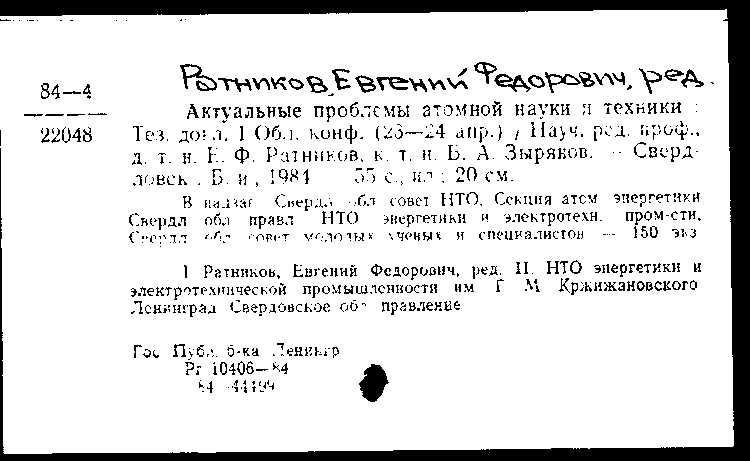 Ратников, Евгений Федорович, ред.
84—4
22048
Актуальные проблемы атомной науки и техники :
Тез. докл. I Обл. конф. (23—24 апр.) / Науч. ред. проф.,
д. т. н. Е. Ф. Ратников, к. т. н. Б. А. Зырянов. — Сверд-
ловск : Б. и., 1984 55 с., ил ; 20 см.
В надзаг Свердл обл совет НТО, Секция атом энергетики
Свердл обл правл НТО энергетики и электротехн. пром-сти,
Свердл обл совет молодых ученых и специалистов — 150 экз
I Ратников, Евгений Федорович, ред. II. НТО энергетики и
электротехнической промышленности им Г М Кржижановского
Ленинград Свердовское обл правление
Гос Публ. б-ка Ленингр
Рг 10406—84
84 44199